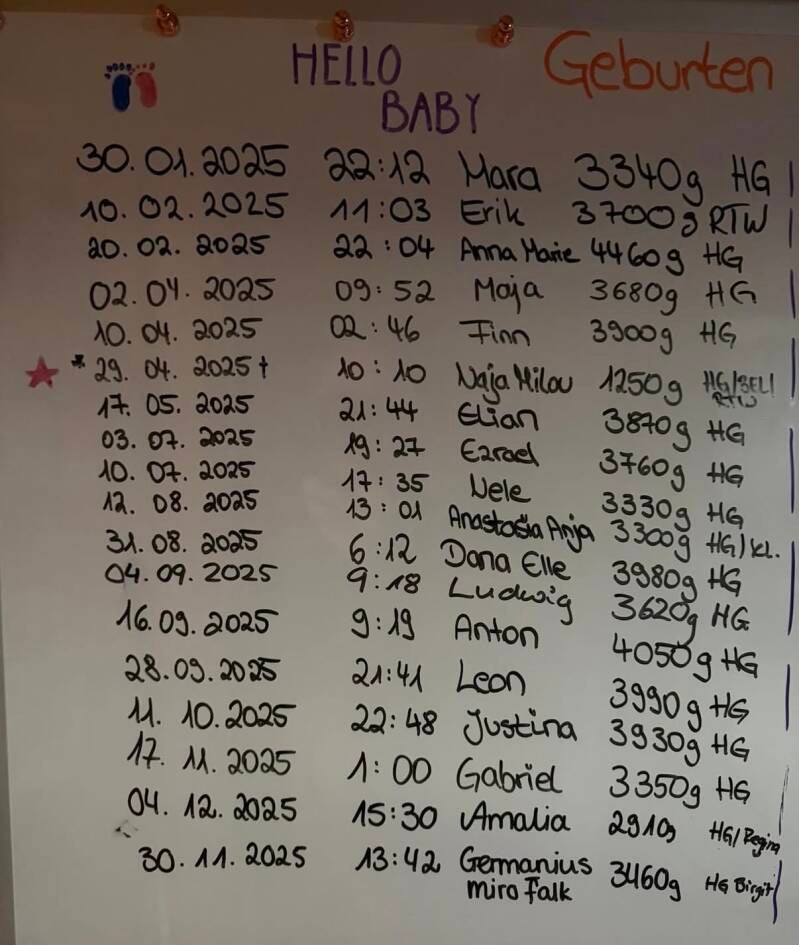 HELLO BABY Geburten
30.01.2025 22:12 Mara 3340g HG
10.02.2025 11:03 Erik 3700g RTW
20.02.2025 22:04 Anna Marie 4460g HG
02.04.2025 09:52 Maja 3680g HG
10.04.2025 02:46 Finn 3900g HG
* 29.04.2025 † 10:10 Naja Milou 1250g HG/SEL/RTW
17.05.2025 21:44 Elian 3870g HG
03.07.2025 19:27 Ezrael 3760g HG
10.07.2025 17:35 Nele 3330g HG
12.08.2025 13:01 Anastasia Anja 3300g HG/KL.
31.08.2025 6:12 Dana Elle 3980g HG
04.09.2025 9:18 Ludwig 3620g HG
16.09.2025 9:19 Anton 4050g HG
28.09.2025 21:41 Leon 3990g HG
11.10.2025 22:48 Justina 3930g HG
17.11.2025 1:00 Gabriel 3350g HG
04.12.2025 15:30 Amalia 2910g HG/Regina
30.11.2025 13:42 Germanius 3460g HG Birgit
miro Falk